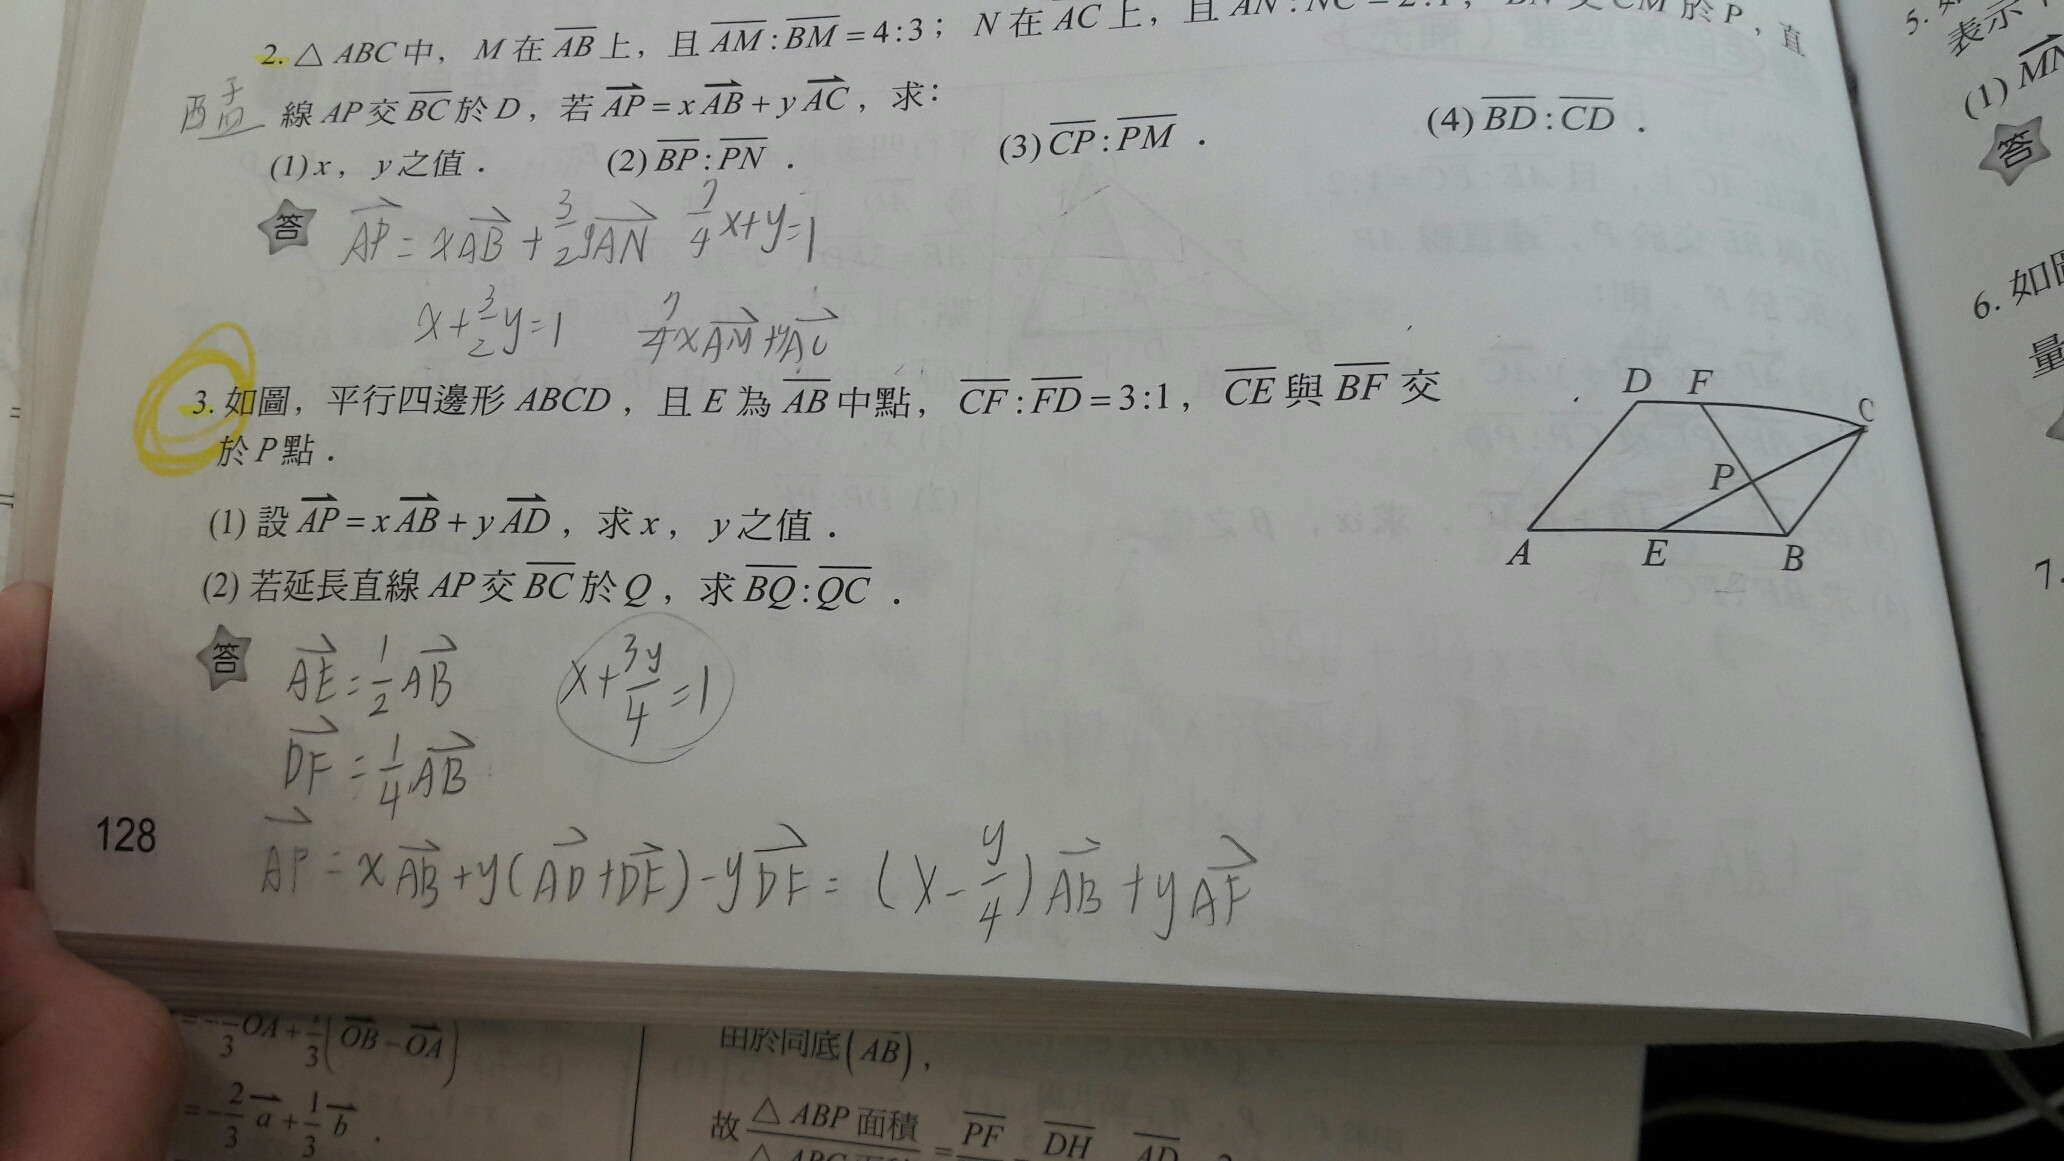 2. △ABC中，M在AB上，且AM:BM=4:3；N在AC上，且AN:NC=2:1，BN交CM於P，直
線AP交BC於D，若AP=xAB+yAC，求：
(1)x，y之值． (2)BP:PN． (3)CP:PM． (4)BD:CD．
答 AP=xAB+3/2yAN 7/4x+y=1
x+3/2y=1 7/4xAM+yAC
3. 如圖，平行四邊形ABCD，且E為AB中點，CF:FD=3:1，CE與BF交
於P點．
(1) 設AP=xAB+yAD，求x，y之值．
(2) 若延長直線AP交BC於Q，求BQ:QC．
D F C
P
A E B
答 AE=1/2AB x+3y/4=1
DF=1/4AB
AP=xAB+y(AD+DF)-yDF=(x-y/4)AB+yAF
128
OA+1/3(OB-OA)
=-2/3a+1/3b．
由於同底(AB)，
故 △ABP面積 = PF DH AD
5.
表示
(1) MN
答
6. 如
量
7.